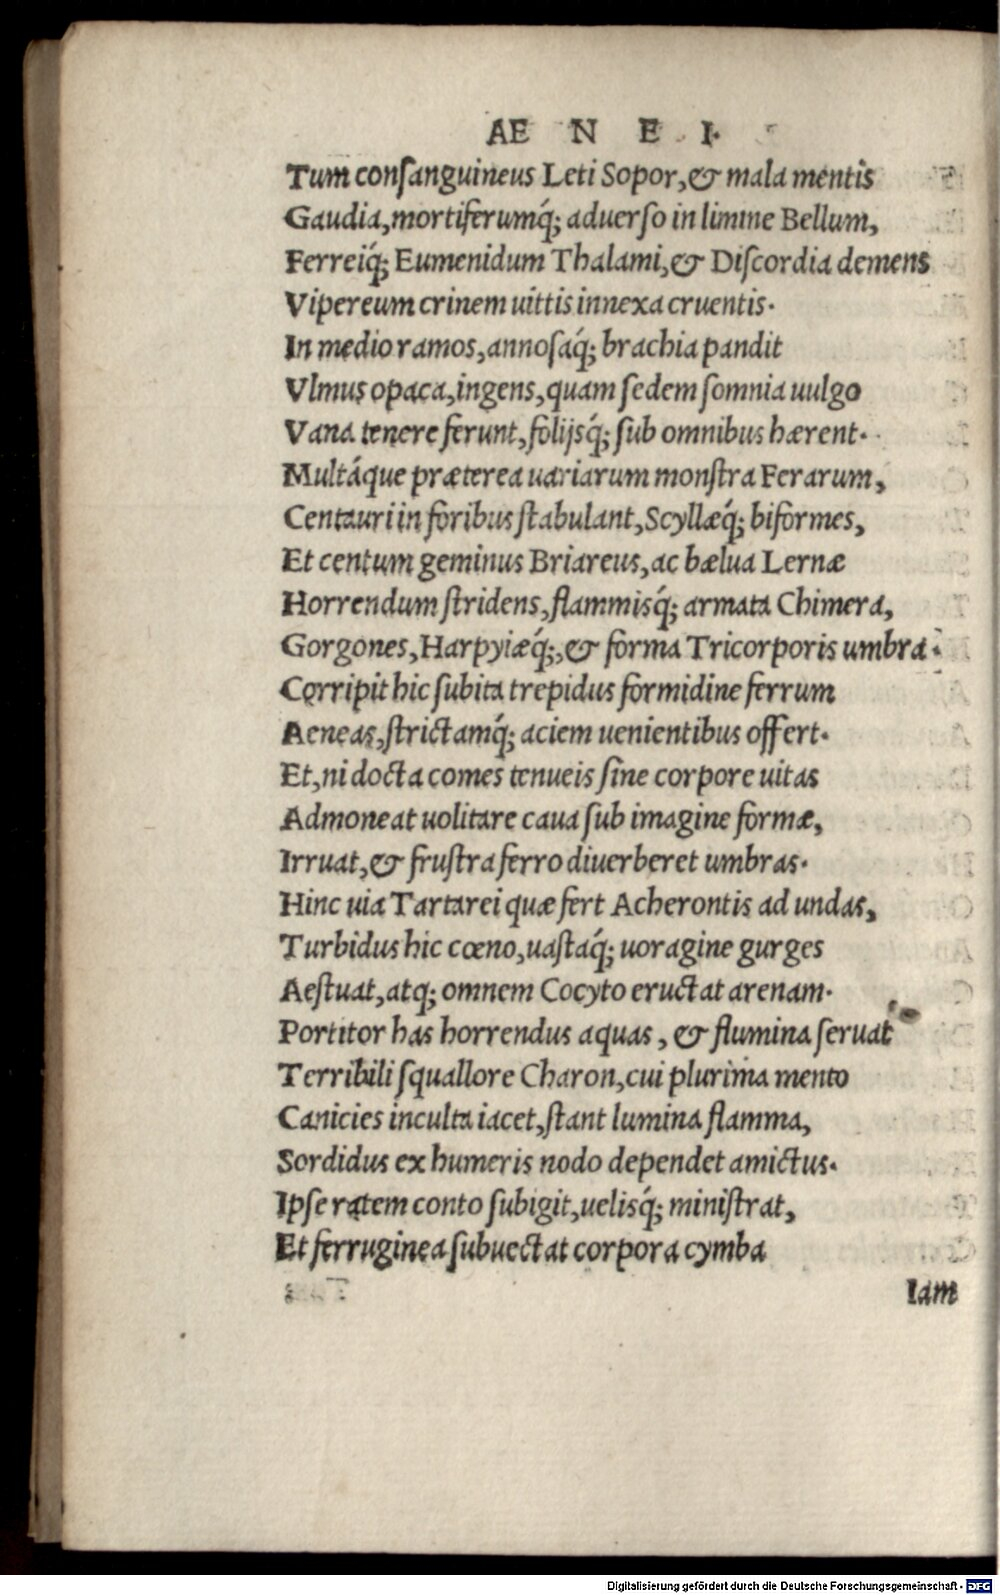 AE N E I.
Tum consanguineus Leti Sopor, & mala mentis
Gaudia, mortiferumq́; aduerso in limine Bellum,
Ferreiq́; Eumenidum Thalami, & Discordia demens
Vipereum crinem uittis innexa cruentis.
In medio ramos, annosaq́; brachia pandit
Vlmus opaca, ingens, quam sedem somnia uulgo
Vana tenere ferunt, folijsq́; sub omnibus hærent.
Multáque præterea uariarum monstra Ferarum,
Centauri in foribus stabulant, Scyllæq́; biformes,
Et centum geminus Briareus, ac bælua Lernæ
Horrendum stridens, flammisq́; armata Chimera,
Gorgones, Harpyiæq́;, & forma Tricorporis umbra.
Corripit hic subita trepidus formidine ferrum
Aeneas, strictamq́; aciem uenientibus offert.
Et, ni docta comes tenueis sine corpore uitas
Admoneat uolitare caua sub imagine formæ,
Irruat, & frustra ferro diuerberet umbras.
Hinc uia Tartarei quæ fert Acherontis ad undas,
Turbidus hic cœno, uastaq́; uoragine gurges
Aestuat, atq; omnem Cocyto eructat arenam.
Portitor has horrendus aquas, & flumina seruat
Terribili squallore Charon, cui plurima mento
Canicies inculta iacet, stant lumina flamma,
Sordidus ex humeris nodo dependet amictus.
Ipse ratem conto subigit, uelisq́; ministrat,
Et ferruginea subuectat corpora cymba
Iam
Digitalisierung gefördert durch die Deutsche Forschungsgemeinschaft - DFG